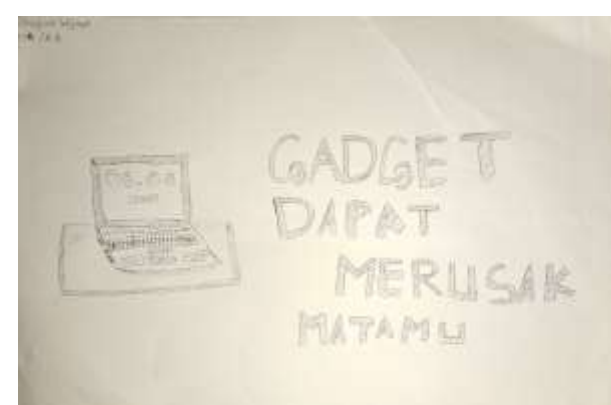 GADGET
DAPAT
MERUSAK
MATAMU